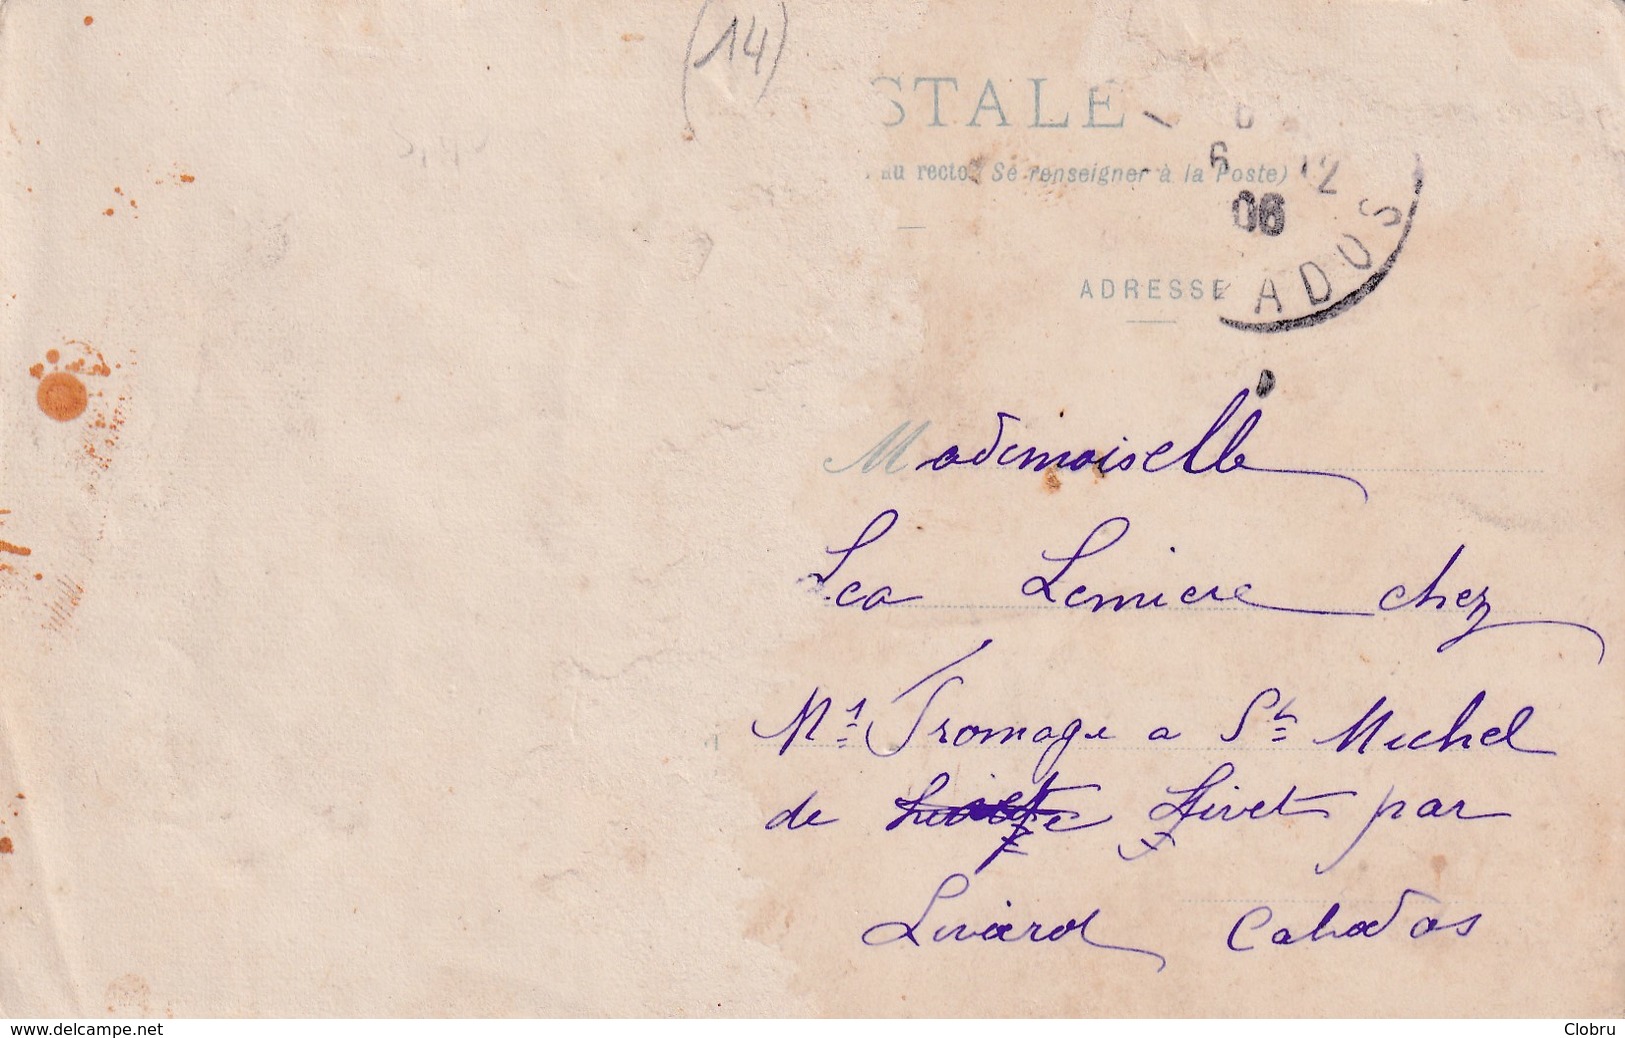 (14)
STALE
au recto (Se renseigner à la Poste)
6 12
06
ADOS
ADRESSE
Mademoiselle
Lea Lemiere chez
Mr Fromage a St Michel
de Livet par
Livarot Calvados
www.delcampe.net
Clobru